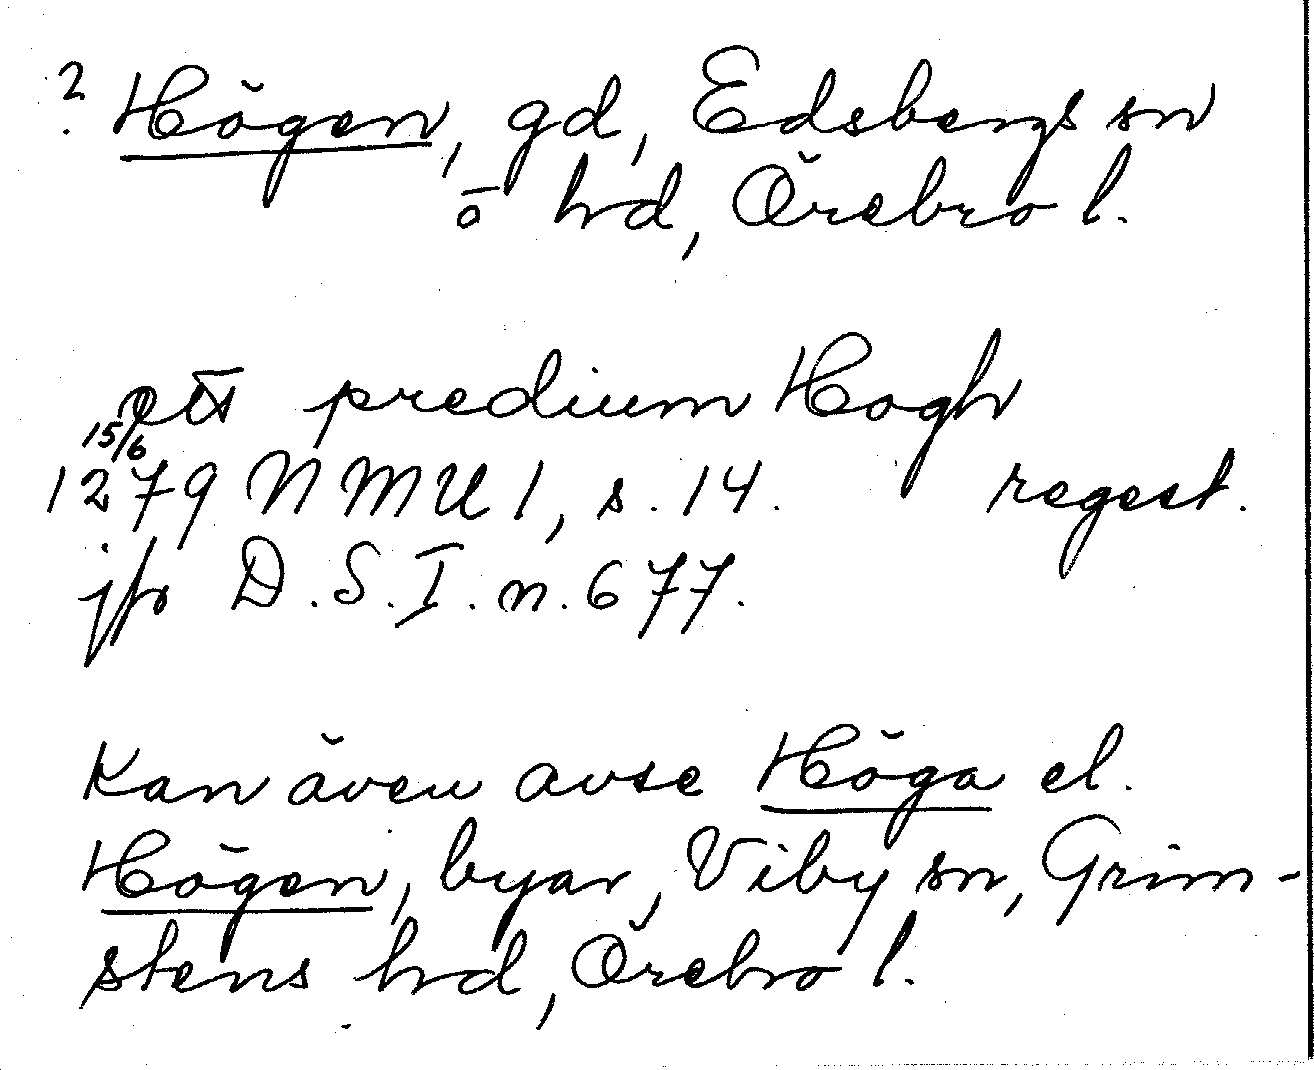 ? Högen, gd, Edsbergs sn
o hd, Örebro l.
ett predium Hogh
15/6
1279 NMU 1, s. 14. regest.
jfr D.S.I.n.677.
Kan även avse Höga el.
Högen, byar, Viby sn, Grim-
stens hd, Örebro l.